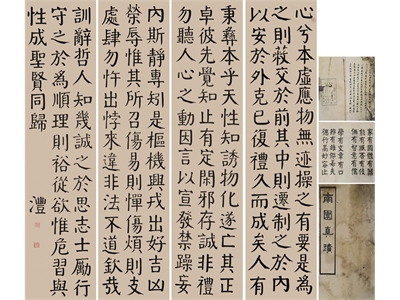 心兮本虛應物無迹操之有要是為
之則蔽交於前其中則遷制之於內
以安於外克己復禮久而成矣人有
秉彝本乎天性知誘物化遂亡其正
卓彼先覺知止有定閑邪存誠非禮
勿聽人心之動因言以宣發禁躁妄
內斯靜專矧是樞機興戎出好吉凶
榮辱惟其所召傷易則憚傷煩則
處肆勿忤出悖來違非法不道欽哉
訓辭哲人知幾誠之於思志士勵行
守之於為順理則裕從欲惟危習與
性成聖賢同歸
澧
德行高妙容止
南園真蹟